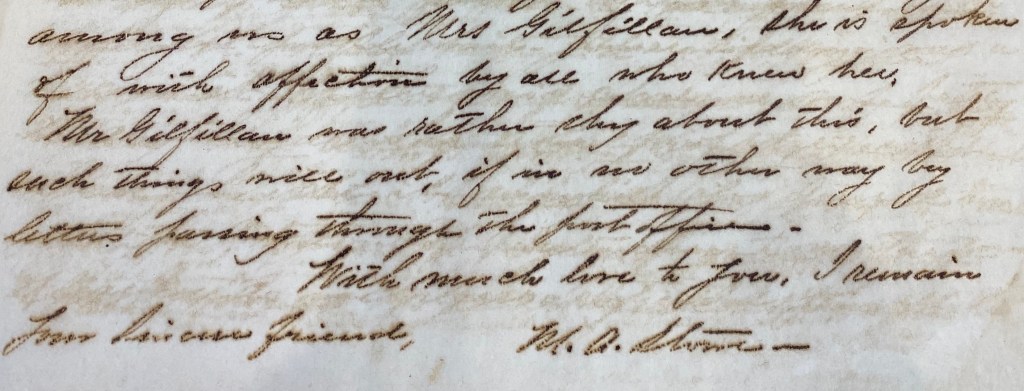 among us as Mrs Gilfillan, she is spoken
of with affection by all who knew her.
Mr Gilfillan was rather shy about this, but
such things will out, if in no other way by
letters passing through the post office -
With much love to you, I remain
Your sincere friend,   M. A. Stone -